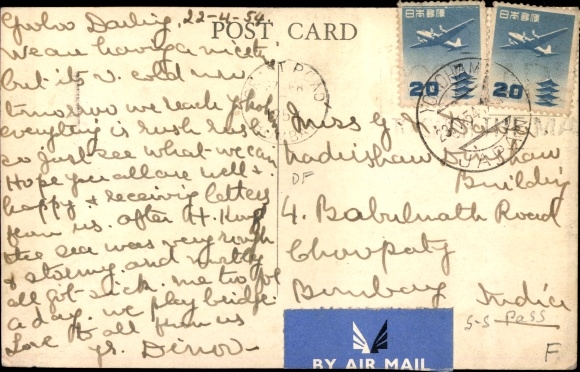 Goloo Darling, 22-4-54.
We are having a nice time
but its v. cold now
tomorrow we reach Yokoh
everything is rush rush
so just see what we can
Hope you all are well &
happy & receiving letters
from us. after H. Kong
the sea was very rough
& stormy. and mostly
all got sick. me too for
a day. we play bridge.
Love to all from us
yrs. Dinoo
POST CARD
日本郵便
20
日本郵便
20
YOKOHAMA
JAPAN
Miss G
Building
DF
4. Babulnath Road
Chowpaty
Bombay India
S-S Pass
BY AIR MAIL
F